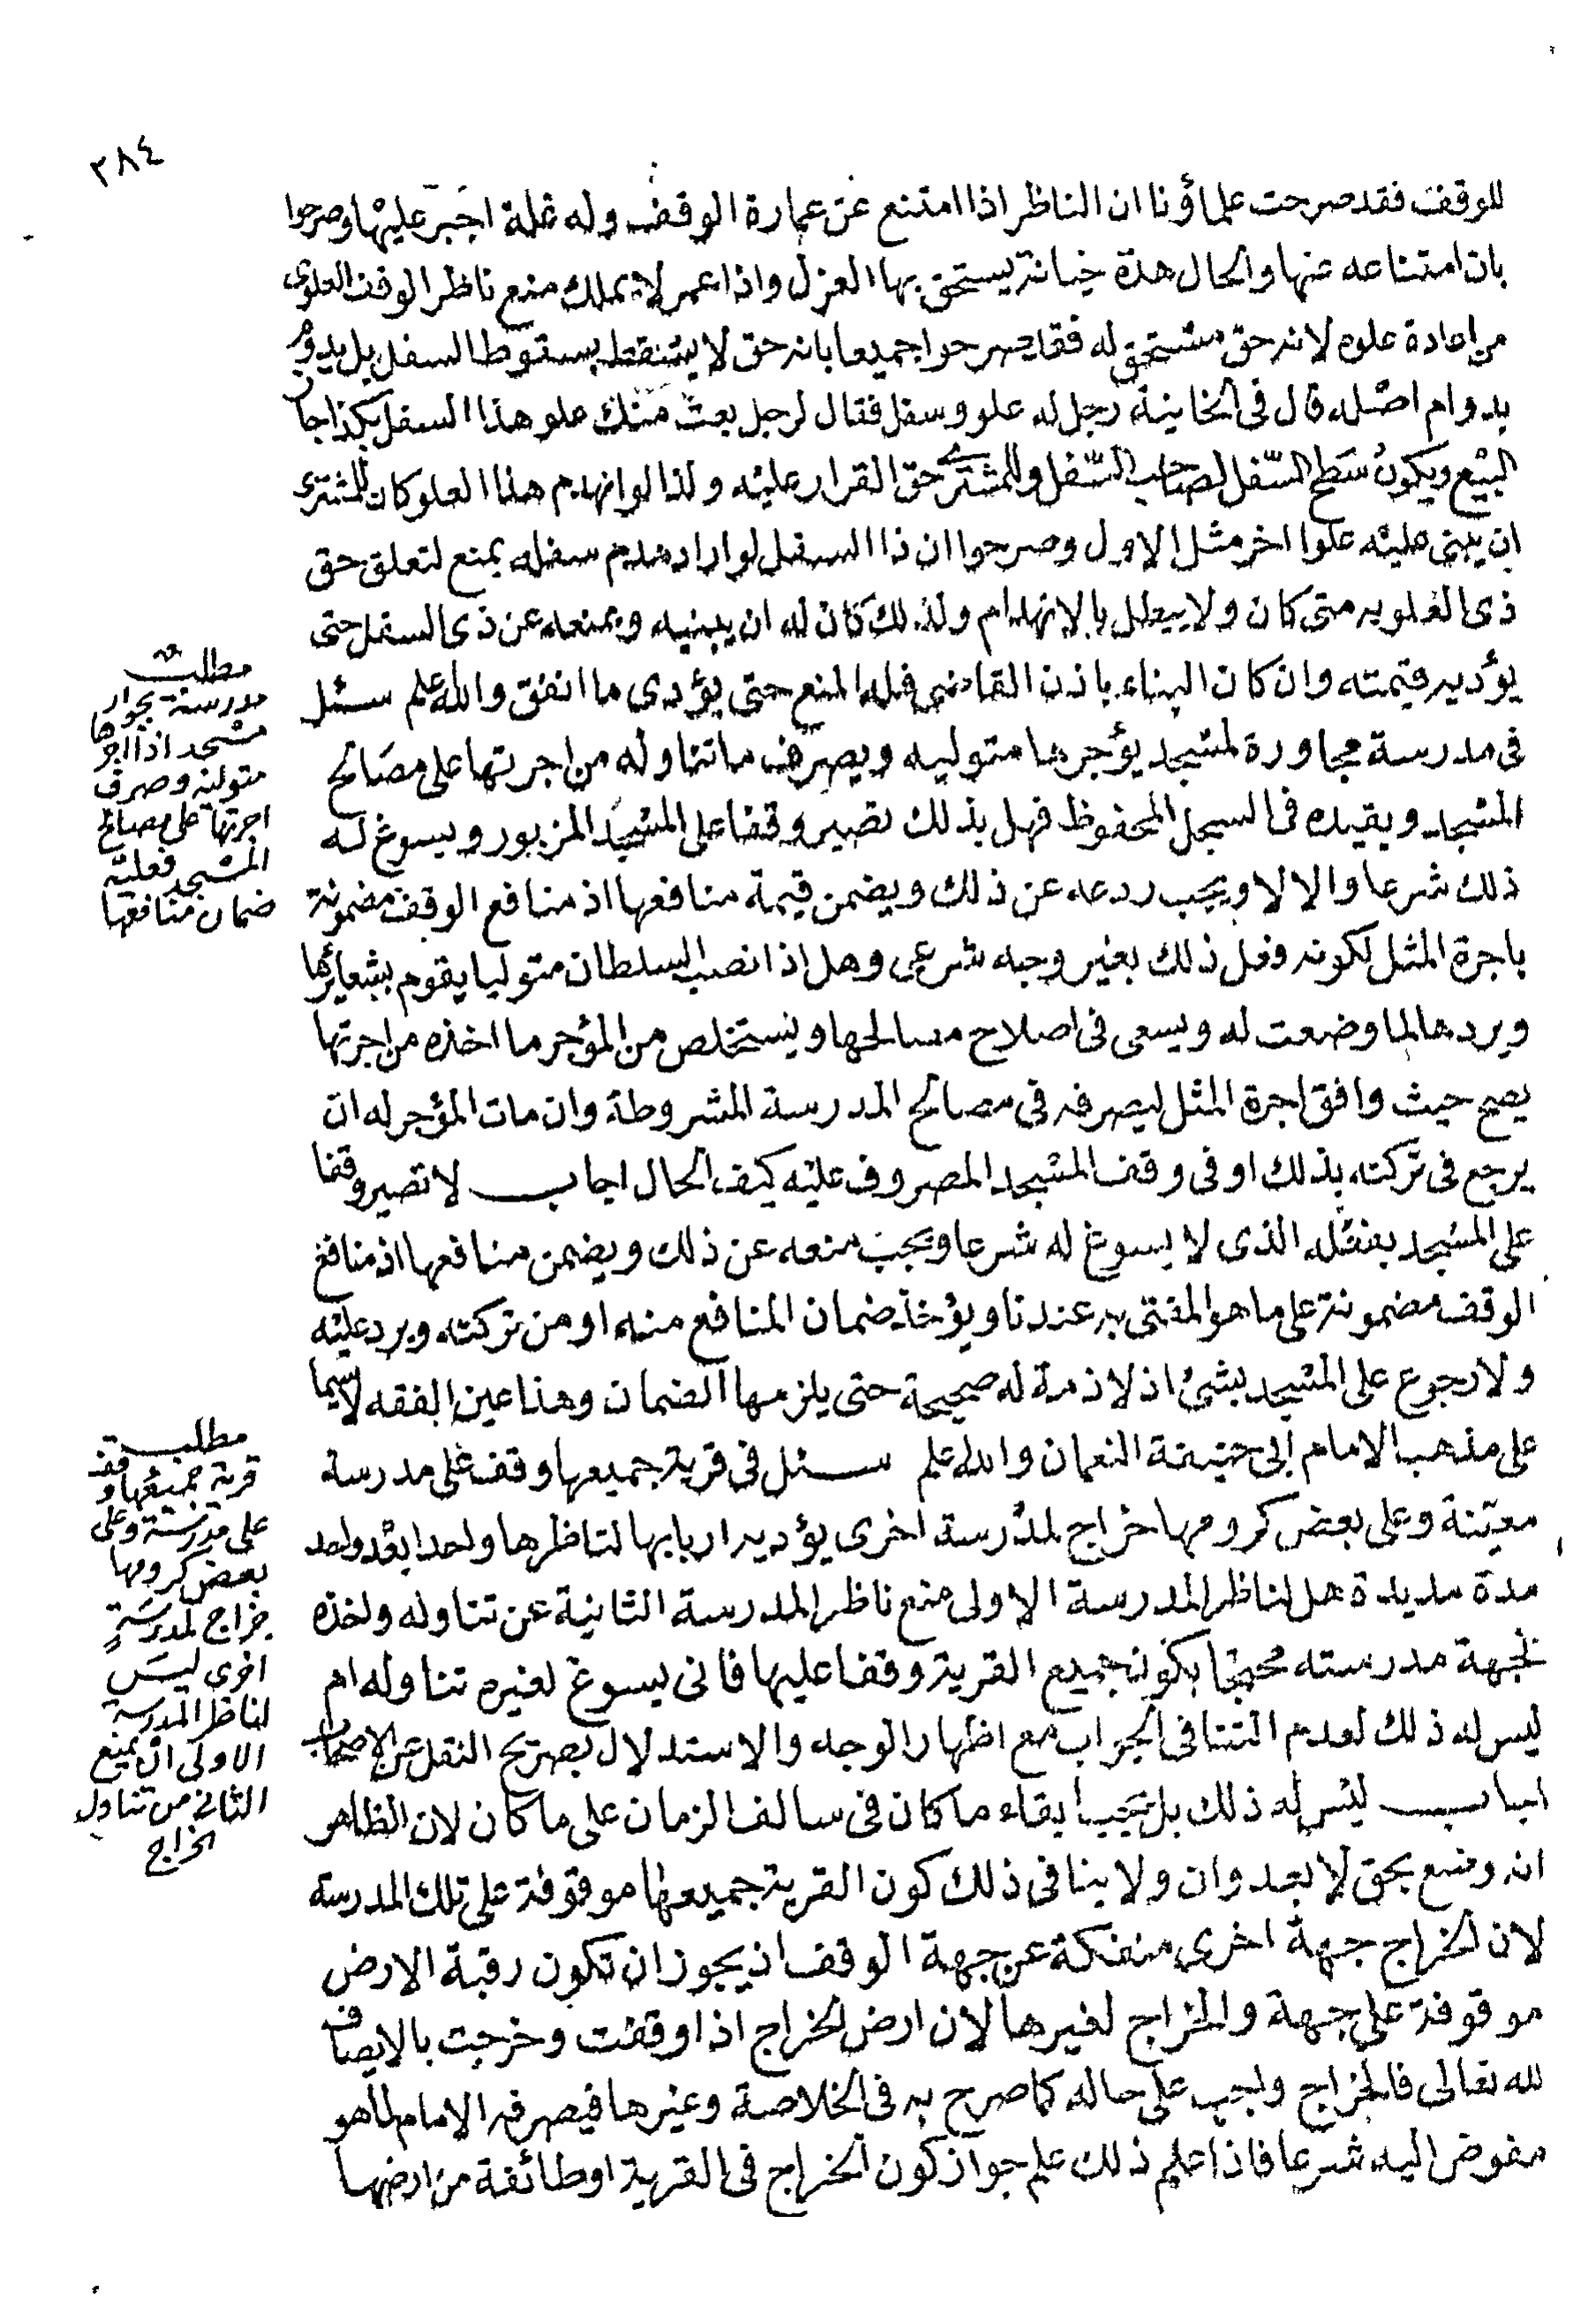 ٣٨٤
للوقف فقد صرحت علماؤنا ان الناظر اذا امتنع عن عمارة الوقف وله غلة اجبر عليها وصرحوا
بان امتناعه عنها والحال هذة خيانة يستحق بها العزل واذا عمر لا يملك منع ناظر الوقف العلوى
من اعادة علوه لانه حق مستحق له فقد صرحوا جميعا بانه حق لا يسقط بسقوط السفل بل يدوم
بدوام اصله قال فى الخانية رجل له علو وسفل فقال لرجل بعت منك علو هذا السفل بكذا جاز
البيع ويكون سطح السفل لصاحب السفل وللمشترى حق القرار عليه ولذا لو انهدم هذا العلو كان للمشترى
ان يبنى عليه علوا اخر مثل الاول وصرحوا ان ذا السفل لو اراد هدم سفله يمنع لتعلق حق
ذى العلو به متى كان ولا يبطل بالانهدام ولذلك كان له ان يبنيه ويمنعه عن ذى السفل حتى
يؤديه قيمته وان كان البناء باذن القاضى فله المنع حتى يؤدى ما انفق والله اعلم سئل
فى مدرسة مجاورة لمسجد يؤجرها متوليه ويصرف ما تناوله من اجرتها على مصالح
المسجد ويقيده فى السجل المحفوظ فهل بذلك تصير وقفا على المسجد المزبور ويسوغ له
ذلك شرعا والا لا ويجب ردعه عن ذلك ويضمن قيمة منافعها اذ منافع الوقف مضمونة
باجرة المثل لكونه وفعل ذلك بغير وجه شرعى وهل اذا نصب السلطان متوليا يقوم بشعائرها
ويردها لما وضعت له ويسعى فى اصلاح مصالحها ويستخلص من المؤجر ما اخذه من اجرتها
يصح حيث وافق اجرة المثل ليصرفه فى مصالح المدرسة المشروطة وان مات المؤجر له ان
يرجع فى تركته بذلك او فى وقف المسجد المصروف عليه كيف الحال اجاب لا تصير وقفا
على المسجد بفعله الذى لا يسوغ له شرعا ويجب منعه عن ذلك ويضمن منافعها اذ منافع
الوقف مضمونة على ما هو المفتى به عندنا ويؤخذ ضمان المنافع منه او من تركته ويرد عليه
ولا رجوع على المسجد بشئ اذ لا ذمة له صحيحة حتى يلزمها الضمان وهذا عين الفقه لاسيما
على مذهب الامام ابى حنيفة النعمان والله اعلم سئل فى قرية جميعها وقف على مدرسة
معينة وعلى بعض كرومها خراج لمدرسة اخرى يؤديه اربابها لناظرها واحدا بعد واحد
مدة مديدة هل لناظر المدرسة الاولى منع ناظر المدرسة الثانية عن تناوله واخذه
لجهة مدرسته محتجا بكون جميع القرية وقفا عليها فانى يسوغ لغيره تناوله ام
ليس له ذلك لعدم التنافى الجواب مع اظهار الوجه والاستدلال بصريح النقل عن الاصحاب
اجاب ليس له ذلك بل يجب ابقاء ما كان فى سالف الزمان على ما كان لان الظاهر
انه وضع بحق لا بعدوان ولا ينافى ذلك كون القرية جميعها موقوفة على تلك المدرسة
لان الخراج جهة اخرى منفكة عن جهة الوقف اذ يجوز ان تكون رقبة الارض
موقوفة على جهة والخراج لغيرها لان ارض الخراج اذا وقفت وخرجت بالايصاف
لله تعالى فالخراج واجب على حاله كما صرح به فى الخلاصة وغيرها فيصرفه الامام لما هو
مفوض اليه شرعا فاذا علم ذلك علم جواز كون الخراج فى القرية او طائفة من ارضها
مطلب
مدرسة بجوارها
مسجد اذا اجر
متوليه وصرف
اجرتها على مصالح
المسجد فعليه
ضمان منافعها
مطلب
قرية جميعها وقف
على مدرسة وعلى
بعض كرومها
خراج لمدرسة
اخرى ليس
لناظر المدرسة
الاولى ان يمنع
الثانى من تناول
الخراج